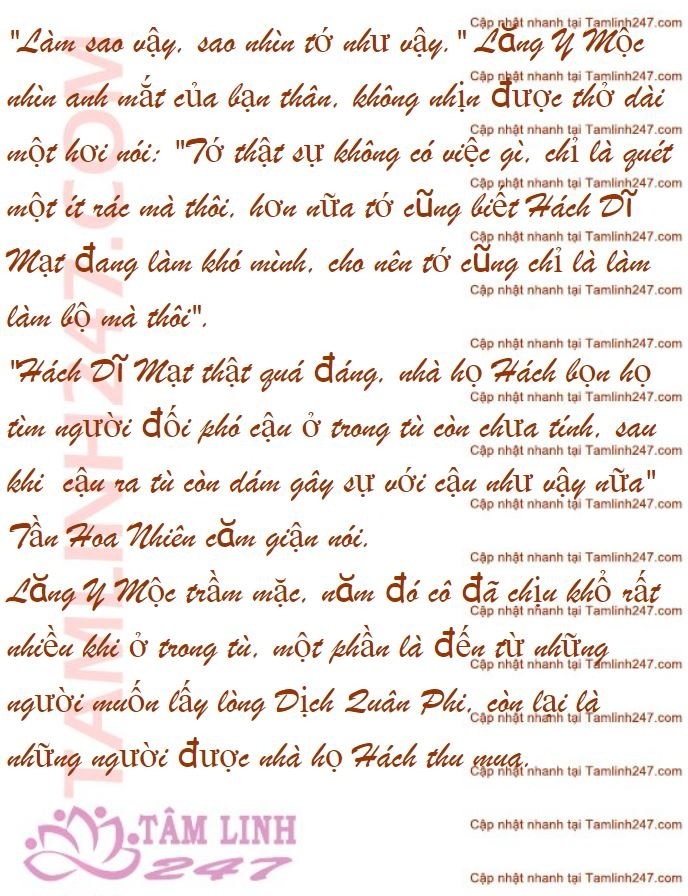 Cập nhật nhanh tại Tamlinh247.com
"Làm sao vậy, sao nhìn tớ như vậy." Lăng Y Mộc
Cập nhật nhanh tại Tamlinh247.com
nhìn anh mắt của bạn thân, không nhịn được thở dài
Cập nhật nhanh tại Tamlinh247.com
một hơi nói: "Tớ thật sự không có việc gì, chỉ là quét
Cập nhật nhanh tại Tamlinh247.com
một ít rác mà thôi, hơn nữa tớ cũng biết Hách Dĩ
Cập nhật nhanh tại Tamlinh247.com
Mạt đang làm khó mình, cho nên tớ cũng chỉ là làm
Cập nhật nhanh tại Tamlinh247.com
làm bộ mà thôi".
Cập nhật nhanh tại Tamlinh247.com
"Hách Dĩ Mạt thật quá đáng, nhà họ Hách bọn họ
Cập nhật nhanh tại Tamlinh247.com
tìm người đối phó cậu ở trong tù còn chưa tính, sau
Cập nhật nhanh tại Tamlinh247.com
khi cậu ra tù còn dám gây sự với cậu như vậy nữa"
Cập nhật nhanh tại Tamlinh247.com
Tần Hoa Nhiên căm giận nói.
Cập nhật nhanh tại Tamlinh247.com
Lăng Y Mộc trầm mặc, năm đó cô đã chịu khổ rất
Cập nhật nhanh tại Tamlinh247.com
nhiều khi ở trong tù, một phần là đến từ những
Cập nhật nhanh tại Tamlinh247.com
người muốn lấy lòng Dịch Quân Phi, còn lại là
Cập nhật nhanh tại Tamlinh247.com
những người được nhà họ Hách thu mua.
Cập nhật nhanh tại Tamlinh247.com
TAMLINH247.COM
Cập nhật nhanh tại Tamlinh247.com
TÂM LINH
247
Cập nhật nhanh tại Tamlinh247.com